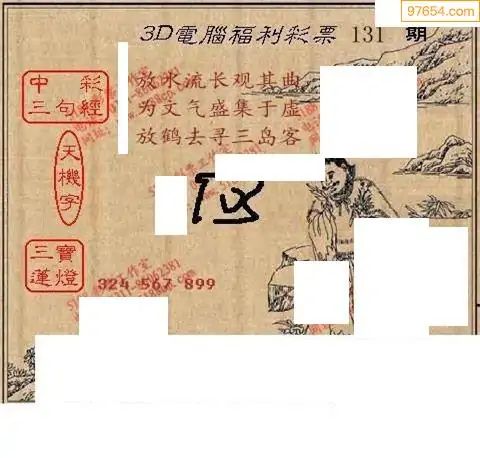 97654.com
3D電腦福利彩票 131 期
中彩
三句經
放水流长观其曲
为文气盛集于虚
放鹤去寻三岛客
天機字
三寶
蓮燈
324 567 899